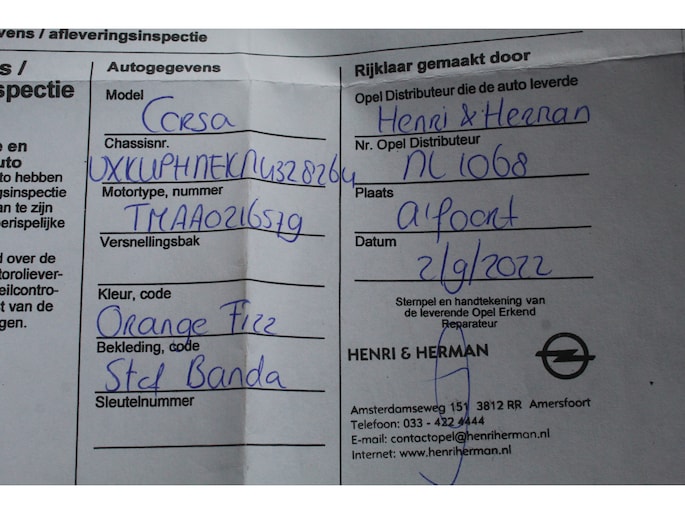 vens / afleveringsinspectie
s /
spectie
e en
uto
to hebben
gsinspectie
an te zijn
perispelijke
d over de
toroliever-
eilcontro-
t van de
gen.
Autogegevens
Model
Corsa
Chassisnr.
UXKUPHNEKN4328264
Motortype, nummer
TMAA0216579
Versnellingsbak
Kleur, code
Orange Fizz
Bekleding, code
Stof Banda
Sleutelnummer
Rijklaar gemaakt door
Opel Distributeur die de auto leverde
Henri & Herman
Nr. Opel Distributeur
NL 1068
Plaats
A'foort
Datum
2/9/2022
Stempel en handtekening van
de leverende Opel Erkend
Reparateur
HENRI & HERMAN
Amsterdamseweg 151 3812 RR Amersfoort
Telefoon: 033 - 422 4444
E-mail: contactopel@henriherman.nl
Internet: www.henriherman.nl